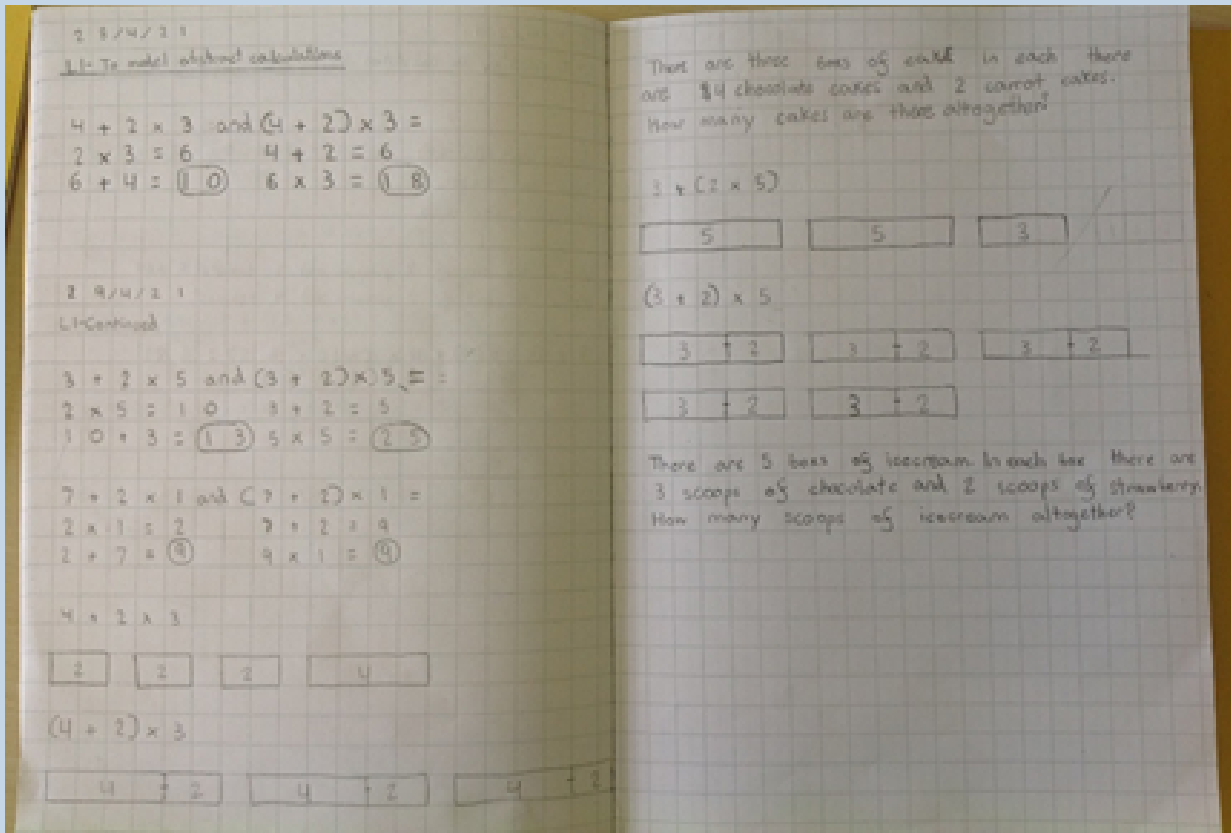 2 8 / 4 / 2 1
LI- To model abstract calculations
4 + 2 x 3 and (4 + 2) x 3 =
2 x 3 = 6 4 + 2 = 6
6 + 4 = 1 0 6 x 3 = 1 8
2 9 / 4 / 2 1
LI-Continued
3 + 2 x 5 and (3 + 2) x 5 =
2 x 5 = 1 0 3 + 2 = 5
1 0 + 3 = 1 3 5 x 5 = 2 5
7 + 2 x 1 and (7 + 2) x 1 =
2 x 1 = 2 7 + 2 = 9
2 + 7 = 9 9 x 1 = 9
4 + 2 x 3
2 2 2 4
(4 + 2) x 3
4 + 2 4 + 2 4 + 2
There are three of cake in each there
are 4 chocolate cakes and 2 carrot cakes.
How many cakes are there altogether?
3 + (2 x 5)
5 5 3
(3 + 2) x 5
3 + 2 3 + 2 3 + 2
3 + 2 3 + 2
There are 5 of icecream. In each box there are
3 scoops of chocolate and 2 scoops of strawberry.
How many scoops of icecream altogether?